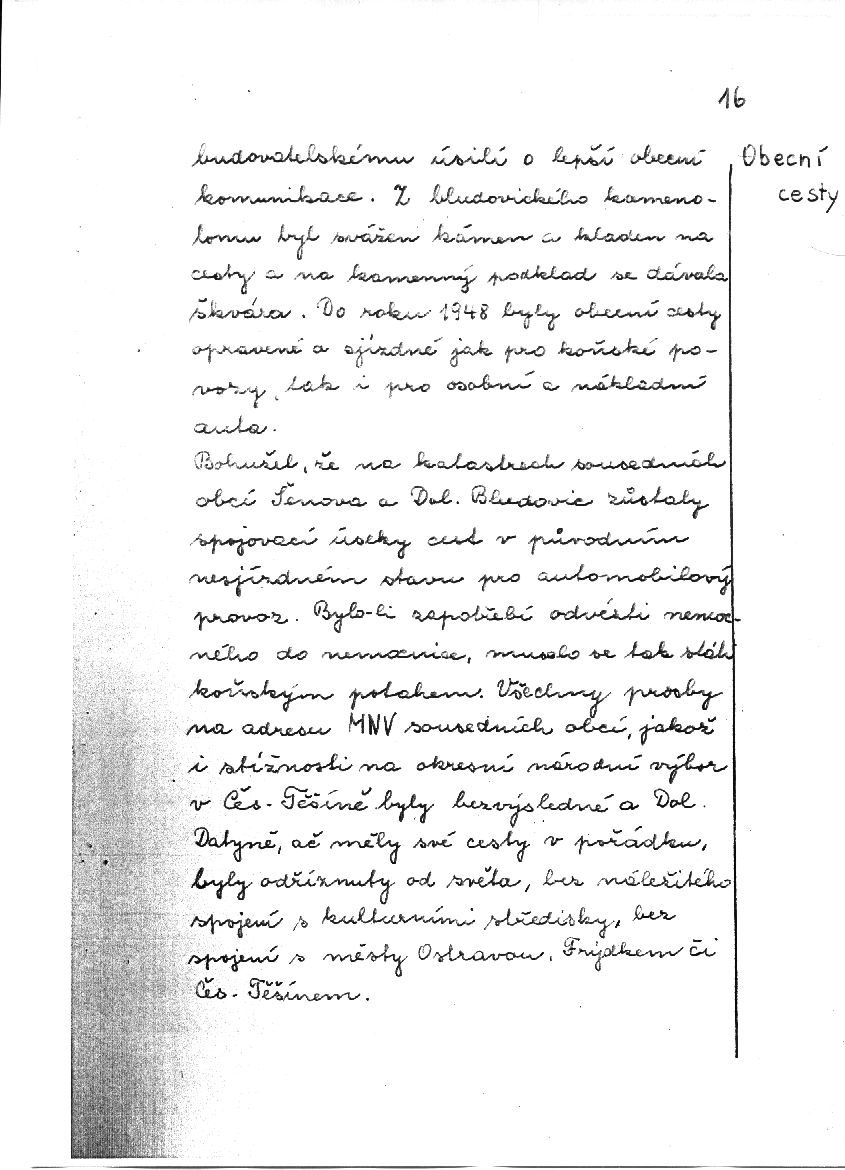 16
Obecní
cesty
budovatelskému úsilí o lepší obecní
komunikace. Z bludovického kameno-
lomu byl svážen kámen a kladen na
cesty a na kamenný podklad se dávala
škvára. Do roku 1948 byly obecní cesty
opravené a sjízdné jak pro koňské po-
vozy, tak i pro osobní a nákladní
auta.
Bohužel, že na katastrech sousedních
obcí Šenova a Dol. Bludovic zůstaly
spojovací úseky cest v původním
nesjízdném stavu pro automobilový
provoz. Bylo-li zapotřebí odvésti nemoc-
ného do nemocnice, muselo se tak státi
koňským potahem. Všechny prosby
na adresu MNV sousedních obcí, jakož
i stížnosti na okresní národní výbor
v Čes. Těšíně byly bezvýsledné a Dol.
Datyně, ač měly své cesty v pořádku,
byly odříznuty od světa, bez náležitého
spojení s kulturními středisky, bez
spojení s městy Ostravou, Frýdkem či
Čes. Těšínem.